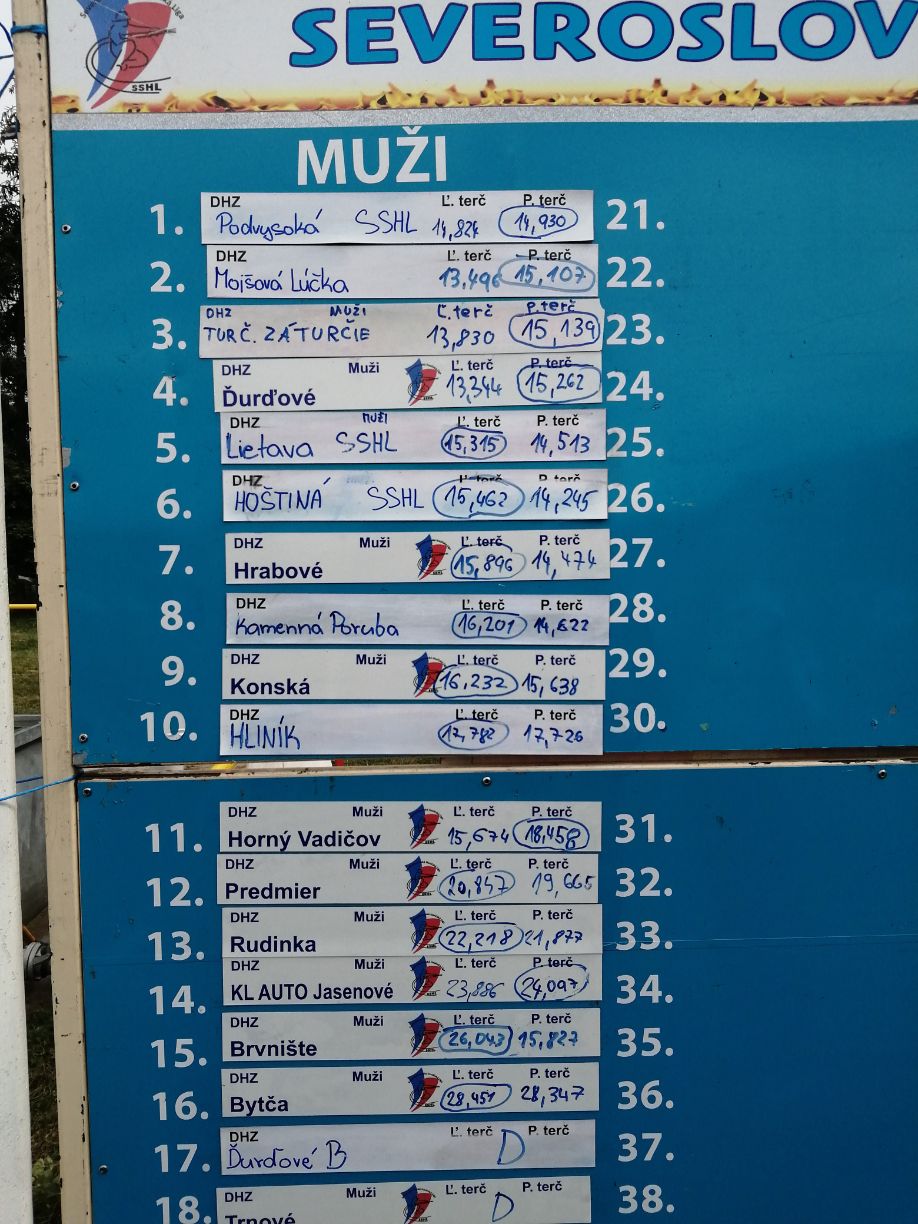 SSHL
SEVEROSLOV
MUŽI
1. DHZ Ľ. terč P. terč 21.
Podvysoká SSHL 14,824 14,930
2. DHZ Ľ. terč P. terč 22.
Mojšová Lúčka 13,496 15,107
3. DHZ MUŽI Ľ.terč P.terč 23.
TURČ. ZÁTURČIE 13,830 15,139
4. DHZ Muži Ľ. terč P. terč 24.
Ďurďové 13,344 15,262
5. DHZ MUŽI Ľ. terč P. terč 25.
Lietava SSHL 15,315 14,513
6. DHZ Ľ. terč P. terč 26.
HOŠTINÁ SSHL 15,462 14,245
7. DHZ Muži Ľ. terč P. terč 27.
Hrabové 15,896 14,474
8. DHZ Ľ. terč P. terč 28.
Kamenná Poruba 16,201 14,622
9. DHZ Muži Ľ. terč P. terč 29.
Konská 16,232 15,638
10. DHZ Ľ. terč P. terč 30.
HLINÍK 17,782 17,726
11. DHZ Muži Ľ. terč P. terč 31.
Horný Vadičov 15,674 18,458
12. DHZ Muži Ľ. terč P. terč 32.
Predmier 20,847 19,665
13. DHZ Muži Ľ. terč P. terč 33.
Rudinka 22,218 21,877
14. DHZ Muži Ľ. terč P. terč 34.
KL AUTO Jasenové 23,886 24,097
15. DHZ Muži Ľ. terč P. terč 35.
Brvnište 26,043 15,827
16. DHZ Muži Ľ. terč P. terč 36.
Bytča 28,451 28,347
17. DHZ Ľ. terč P. terč 37.
Ďurďové B D
18. DHZ Muži Ľ. terč P. terč 38.
Trnové D